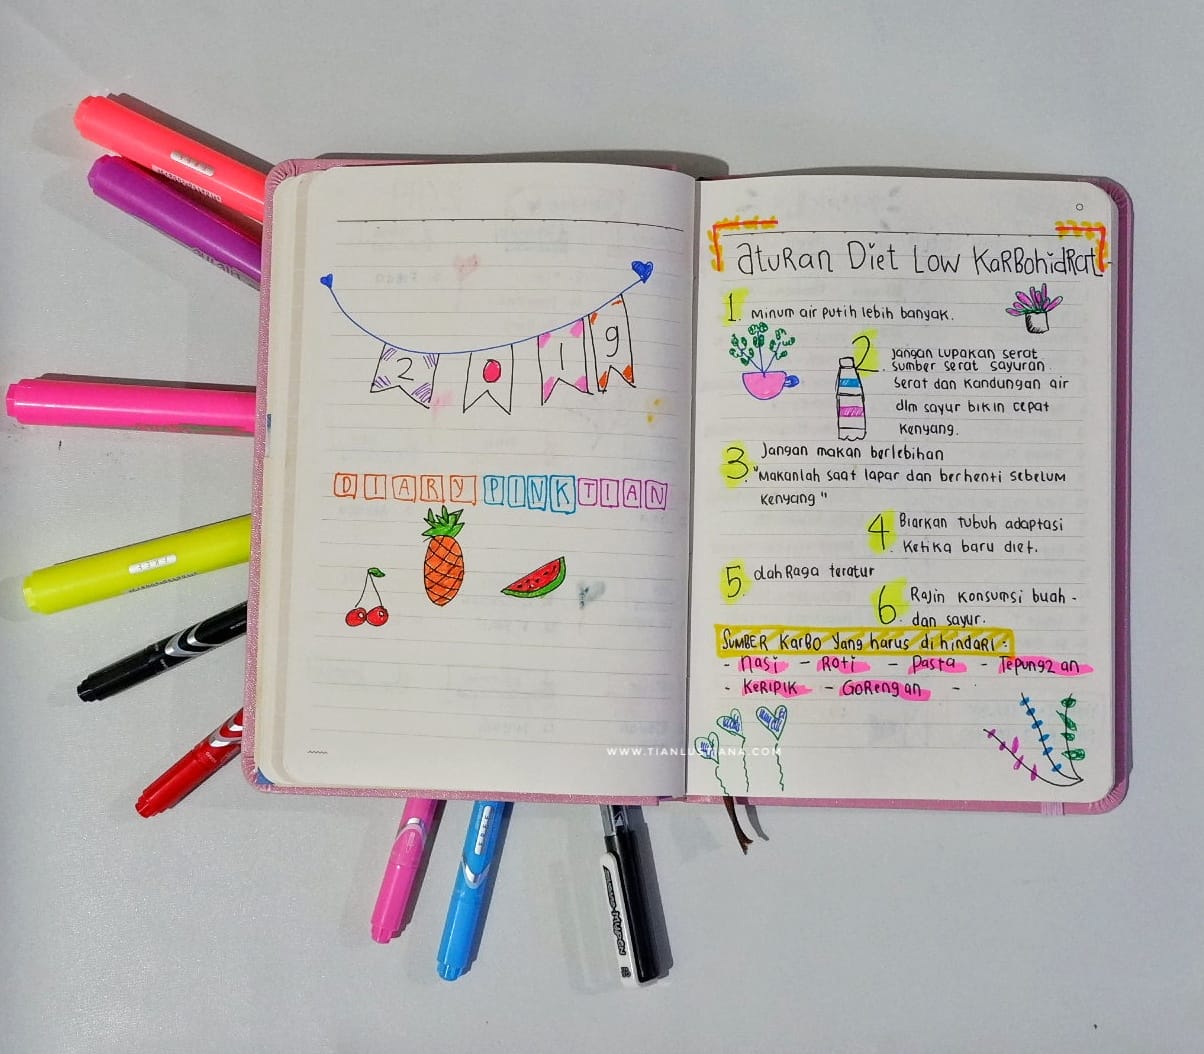 2 0 1 9
DIARY PINKTIAN
aturan Diet Low Karbohidrat
1. Minum air putih lebih banyak.
2. Jangan lupakan serat
sumber serat sayuran
serat dan kandungan air
dlm sayur bikin cepat
kenyang.
3. Jangan makan berlebihan
"Makanlah saat lapar dan berhenti sebelum
kenyang"
4. Biarkan tubuh adaptasi
ketika baru diet.
5. olah Raga teratur
6. Rajin konsumsi buah -
dan sayur.
SUMBER KARBO yang harus di hindari :
- nasi - Roti - Pasta - Tepung2 an
- KERIPIK - GORengan -
WWW.TIANLUSTIANA.COM